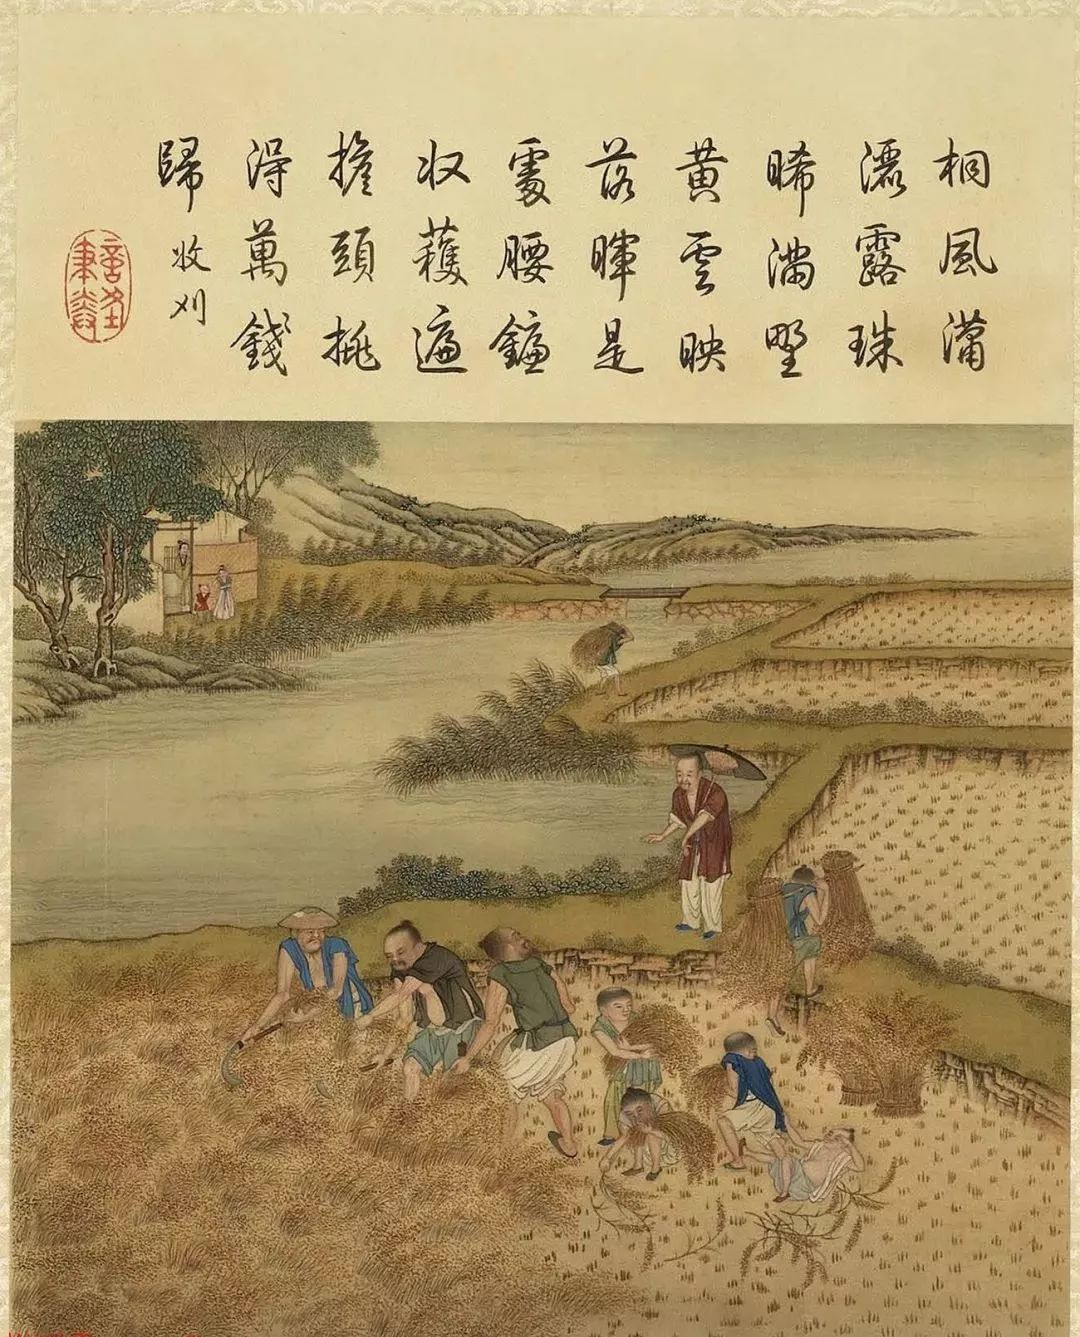 桐風瀟
灑露珠
晞滿野
黃雲映
落暉是
處腰鎌
収穫遍
擔頭挑
得萬錢
歸 收刈